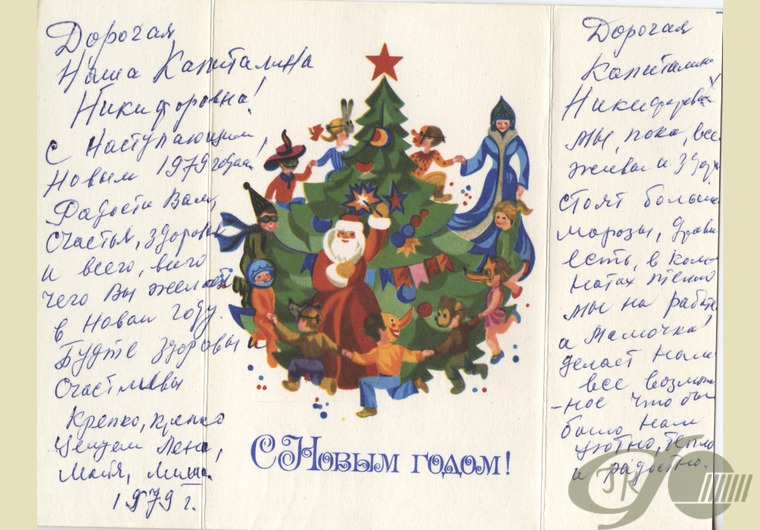 Дорогая
Наша Капиталина
Никифоровна!
С Наступающим
Новым 1979 годом!
Радости Вам,
счастья, здоровья
и всего, всего
чего Вы желаете
в Новом году.
Будте здоровы и
счастливы
Крепко, крепко
целуем Лена,
Митя, Миша.
1979 г.
С Новым годом!
Дорогая
Капиталина
Никифоровна
мы, пока, все
живы и здор
стоят больши
морозы, дрова
есть, в ком
натах тепло
мы на работе
а Мамочка!
делает нам
все возмож
-ное что бы
было нам
уютно, тепло
и радостно.